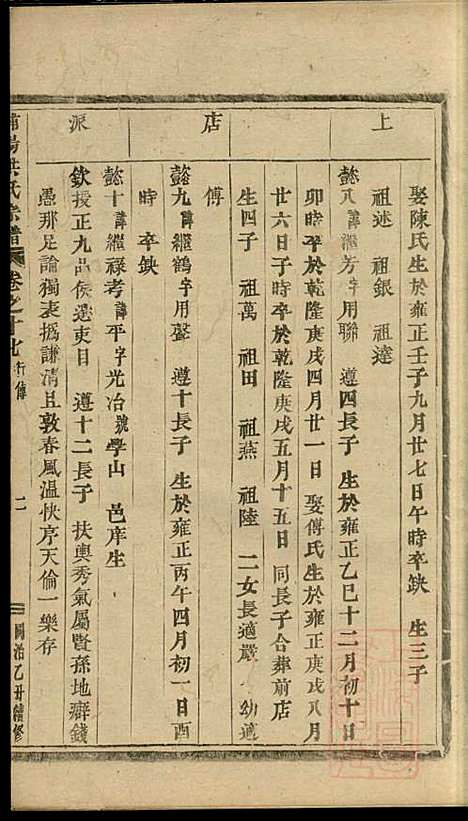 上
店
派
娶陳氏生於雍正壬子九月廿七日午時卒缺 生三子
祖述 祖銀 祖達
懿八諱繼芳字用聯 遵四長子 生於雍正乙巳十二月初十日
卯時卒於乾隆庚戌四月廿一日 娶傅氏生於雍正庚戌八月
廿六日子時卒於乾隆庚戌五月十五日 同長子合葬前店
生四子 祖萬 祖田 祖燕 祖陸 二女長適嚴 幼適
傅
懿九諱繼鶴字用聲 遵十長子 生於雍正丙午四月初一日酉
時 卒缺
懿十諱繼祿考諱平字光冶號學山 邑庠生
欽授正九品侯選吏目 遵十二長子 扶輿秀氣屬賢孫地癖錢
愚那足論獨表撝謙清且敦春風溫快序天倫一樂存
浦陽洪氏宗譜 卷之十七 行傳 二 同治乙丑續修